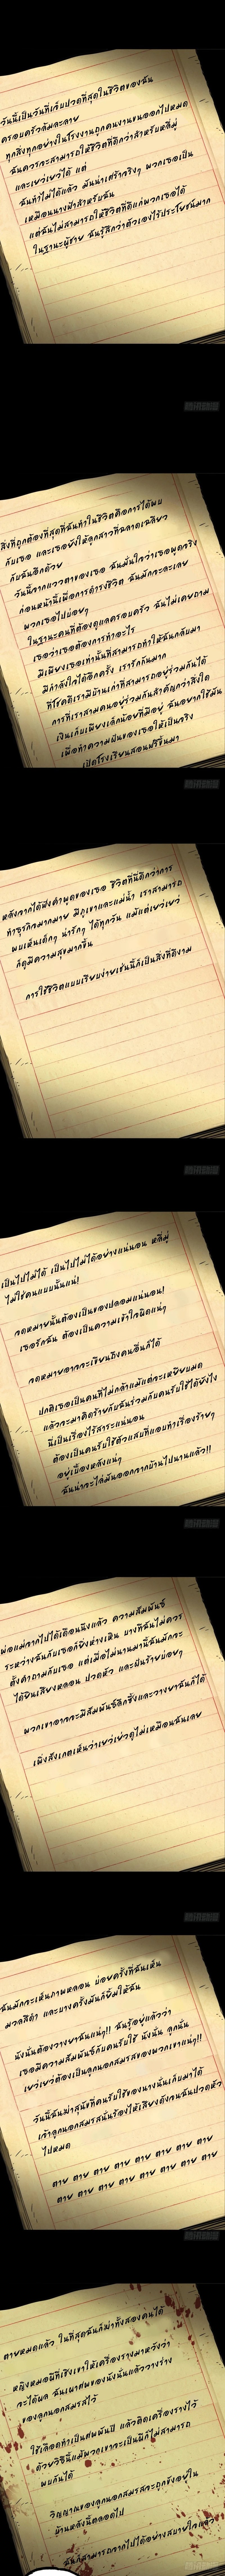 วันนี้เป็นวันที่เจ็บปวดที่สุดในชีวิตของฉัน
ครอบครัวล้มละลาย
ทุกสิ่งทุกอย่างในโรงงานถูกคนงานขนออกไปหมด
ฉันควรจะสามารถให้ชีวิตที่ดีกว่าสำหรับหลี่มู่
และเยว่เยว่ได้ แต่
ฉันทำไม่ได้แล้ว มันน่าเศร้าจริงๆ พวกเธอเป็น
เหมือนนางฟ้าสำหรับฉัน
แต่ฉันไม่สามารถให้ชีวิตที่ดีแก่พวกเธอได้
ในฐานะผู้ชาย ฉันรู้สึกว่าตัวเองไร้ประโยชน์มาก
สิ่งที่ถูกต้องที่สุดที่ฉันทำในชีวิตคือการได้พบ
กับเธอ และเธอยังให้ลูกสาวที่ฉลาดเฉลียว
กับฉันอีกด้วย
วันนี้จากแววตาของเธอ ฉันมั่นใจว่าเธอพูดจริง
ก่อนหน้านี้เพื่อการดำรงชีวิต ฉันมักจะละเลย
พวกเธอไปบ่อยๆ
ในฐานะคนที่ต้องดูแลครอบครัว ฉันไม่เคยถาม
เธอว่าเธอต้องการทำอะไร
มีเพียงเธอเท่านั้นที่สามารถทำให้ฉันกลับมา
มีกำลังใจได้อีกครั้ง เรารักกันมาก
ที่โชคดีเรามีบ้านเก่าที่สามารถอยู่ร่วมกันได้
การที่เราสามคนอยู่ร่วมกันสำคัญกว่าสิ่งใด
เงินเก็บเพียงเล็กน้อยที่มีอยู่ ฉันอยากใช้มัน
เพื่อทำความฝันของเธอให้เป็นจริง
เปิดโรงเรียนสอนฟรีขึ้นมา
หลังจากได้ฟังคำพูดของเธอ ชีวิตที่นี่ดีกว่าการ
ทำธุรกิจมากมาย มีภูเขาและแม่น้ำ เราสามารถ
พบเห็นเด็กๆ น่ารักๆ ได้ทุกวัน แม้แต่เยว่เยว่
ก็ดูมีความสุขมากขึ้น
การใช้ชีวิตแบบเรียบง่ายเช่นนี้ก็เป็นสิ่งที่ดีงาม
เป็นไปไม่ได้ เป็นไปไม่ได้อย่างแน่นอน หลี่มู่
ไม่ใช่คนแบบนั้นแน่!
จดหมายนั้นต้องเป็นของปลอมแน่นอน!
เธอรักฉัน ต้องเป็นความเข้าใจผิดแน่ๆ
จดหมายอาจจะเขียนถึงคนอื่นก็ได้
ปกติเธอเป็นคนที่ไม่กล้าแม้แต่จะเหยียบมด
แล้วจะมาคิดร้ายกับฉันร่วมกับคนรับใช้ได้ยังไง
นี่เป็นเรื่องไร้สาระแน่นอน
ต้องเป็นคนรับใช้ตัวแสบที่แอบทำเรื่องร้ายๆ
อยู่เบื้องหลังแน่ๆ
ฉันน่าจะไล่มันออกจากบ้านไปนานแล้ว!!
พ่อแม่จากไปได้เดือนนึงแล้ว ความสัมพันธ์
ระหว่างฉันกับเธอก็ยิ่งห่างเหิน บางทีฉันไม่ควร
ตั้งคำถามกับเธอ แต่เมื่อไม่นานมานี้ฉันมักจะ
ได้ยินเสียงหลอน ปวดหัว และฝันร้ายบ่อยๆ
พวกเขาอาจจะมีสัมพันธ์ลึกซึ้งและวางยาฉันก็ได้
เพิ่งสังเกตเห็นว่าเยว่เยว่ดูไม่เหมือนฉันเลย
ฉันมักจะเห็นภาพหลอน บ่อยครั้งที่ฉันเห็น
แมวสีดำ และบางครั้งมันก็ยิ้มให้ฉัน
นังนั่นต้องวางยาฉันแน่ๆ!! ฉันรู้อยู่แล้วว่า
เธอมีความสัมพันธ์กับคนรับใช้ นังนั่น ลูกนั่น
เยว่เยว่ต้องเป็นลูกนอกสมรสของพวกเขาแน่ๆ!!
วันนี้ฉันฆ่าสุนัขที่คนรับใช้ของนางนั่นเก็บมาได้
เจ้าลูกนอกสมรสนั่นร้องไห้เสียงดังจนฉันปวดหัว
ไปหมด
ตาย ตาย ตาย ตาย ตาย ตาย ตาย ตาย
ตาย ตาย ตาย ตาย ตาย ตาย ตาย ตาย
ตายหมดแล้ว ในที่สุดฉันก็ฆ่าทั้งสองคนได้
หญิงหมอผีที่เชิงเขาให้เครื่องรางมาหวังว่า
จะได้ผล ฉันเผาศพของนังนั่นแล้ววางร่าง
ของลูกนอกสมรสไว้
ใช้เลือดทำเป็นศพพันปี แล้วติดเครื่องรางไว้
ด้วยวิธีนี้แม้พวกเขาจะเป็นผีก็ไม่สามารถ
พบกันได้
วิญญาณของลูกนอกสมรสจะถูกขังอยู่ใน
บ้านหลังนี้ตลอดไป
ฉันก็สามารถจากไปได้อย่างสบายใจแล้ว